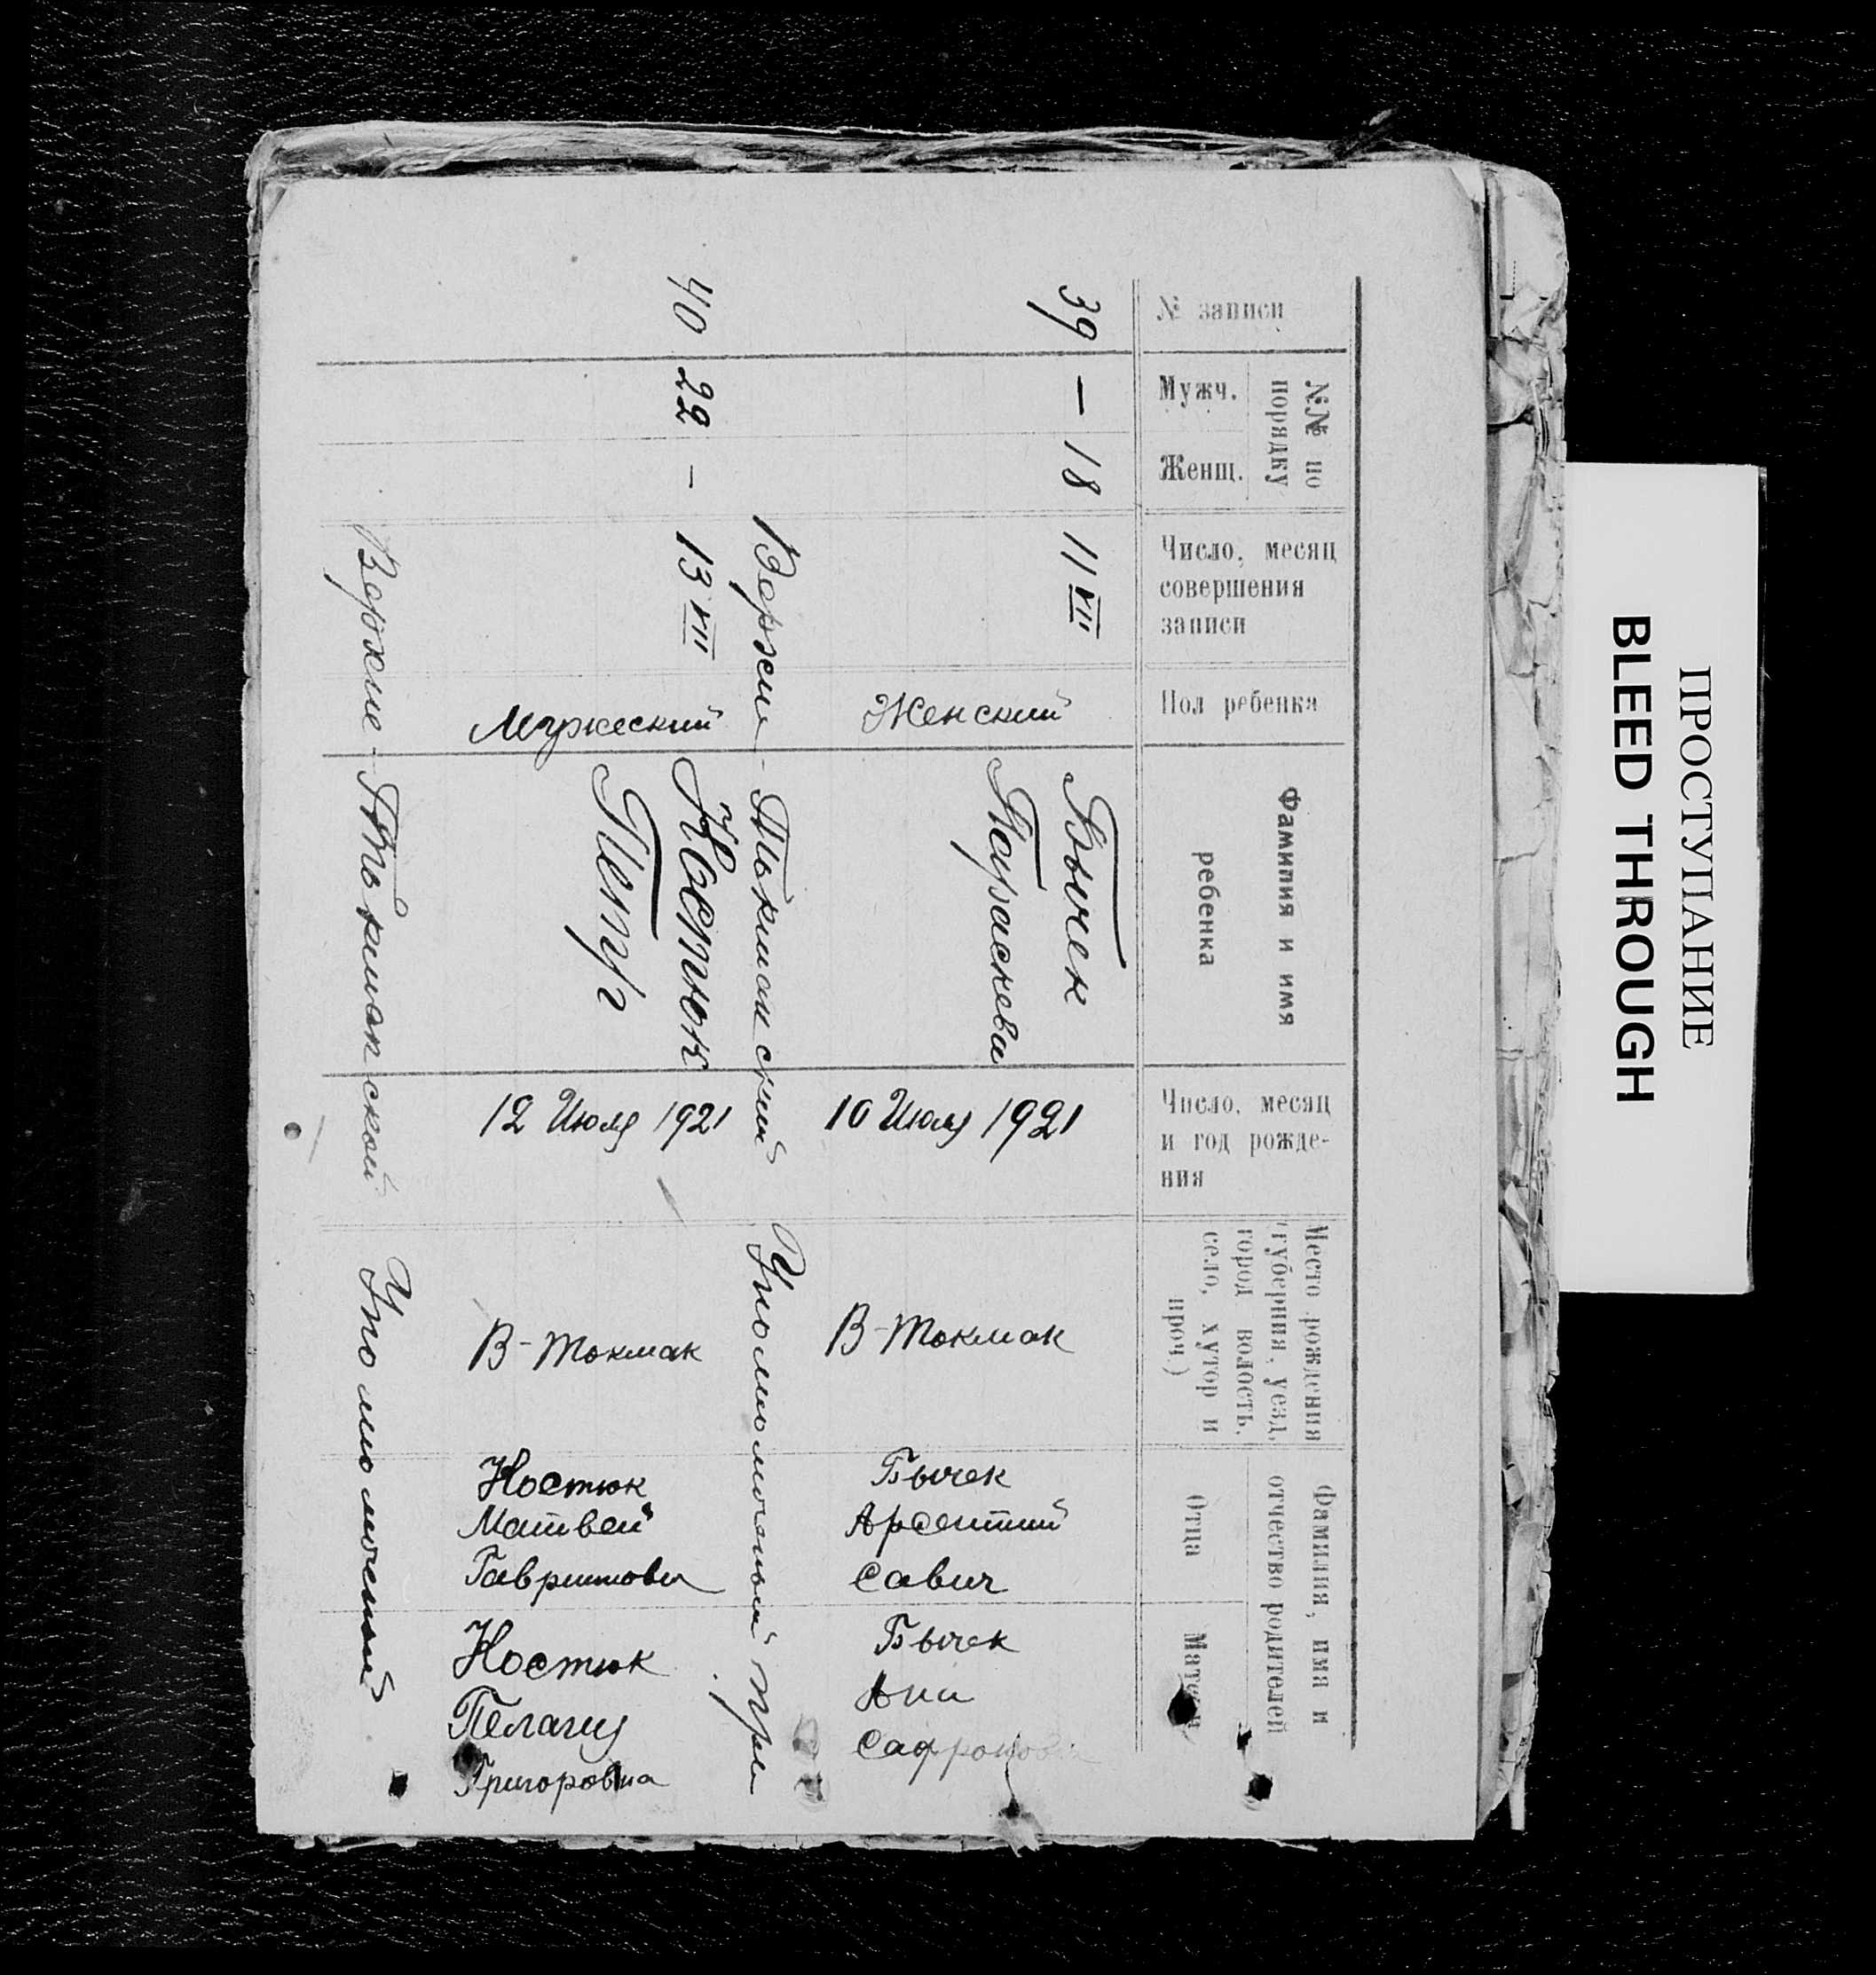 № записи
№№ по
порядку
Мужч.
Женщ.
Число, месяц
совершения
записи
Пол ребенка
Фамилия и имя
ребенка
Число, месяц
и год рожде-
ния
Место рождения
(губерния, уезд,
город волость,
село, хутор и
проч.)
Фамилия, имя и
отчество родителей
Отца
Матери
39
—
18
11 VII
Женский
Бычек
Параскева
10 Июля 1921
В-Токмак
Бычек
Арсентий
Савич
Бычек
Ана
Сафроновна
Верхне-Токмакский Уполномоченый При
40
22
—
13 VII
Мужеский
Костюк
Петр
12 Июля 1921
В-Токмак
Костюк
Матвей
Костюк
Пелагия
Григоровна
Верхне-Токмакской Уполномоченый
ПРОСТУПАНИЕ
BLEED THROUGH